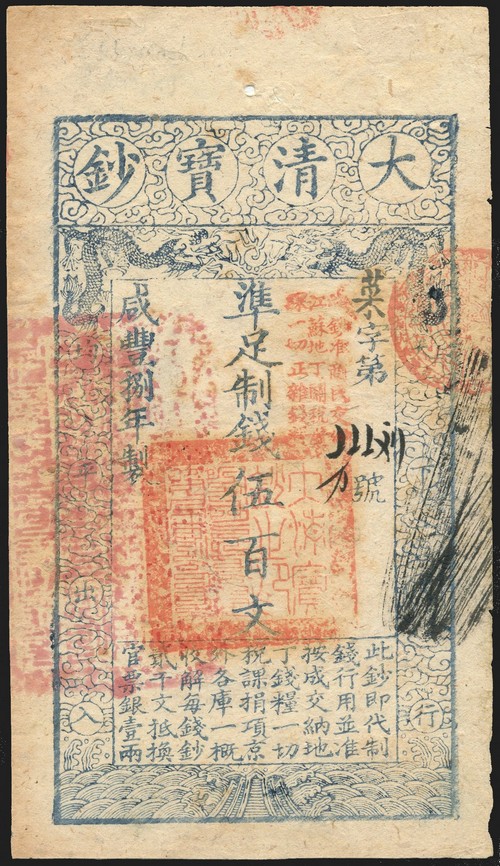 大清寶鈔
菜字第
號
準足制錢伍百文
咸豐捌年製
下
行
平出入
江蘇地丁關稅
一切正雜錢
此鈔即代制
錢行用並准
按成交納地
丁錢糧一切
稅課捐項京
外各庫一概
收解每錢鈔
貳千文抵換
官票銀壹兩